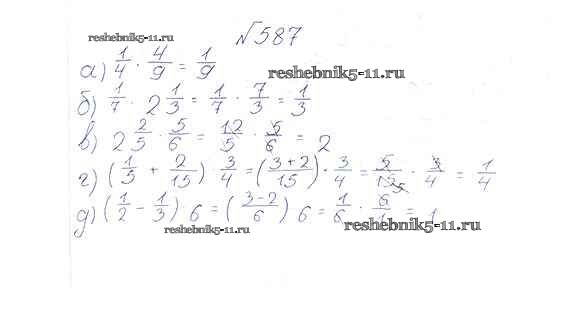 reshebnik5-11.ru
№587
а) 1/4 · 4/9 = 1/9
reshebnik5-11.ru
б) 1/7 · 2 1/3 = 1/7 · 7/3 = 1/3
в) 2 2/5 · 5/6 = 12/5 · 5/6 = 2
г) (1/5 + 2/15) · 3/4 = (3+2/15) · 3/4 = 5/15 5 · 3/4 = 1/4
д) (1/2 - 1/3) 6 = (3-2/6) 6 = 1/6 · 6/1 = 1
reshebnik5-11.ru
reshebnik5-11.ru